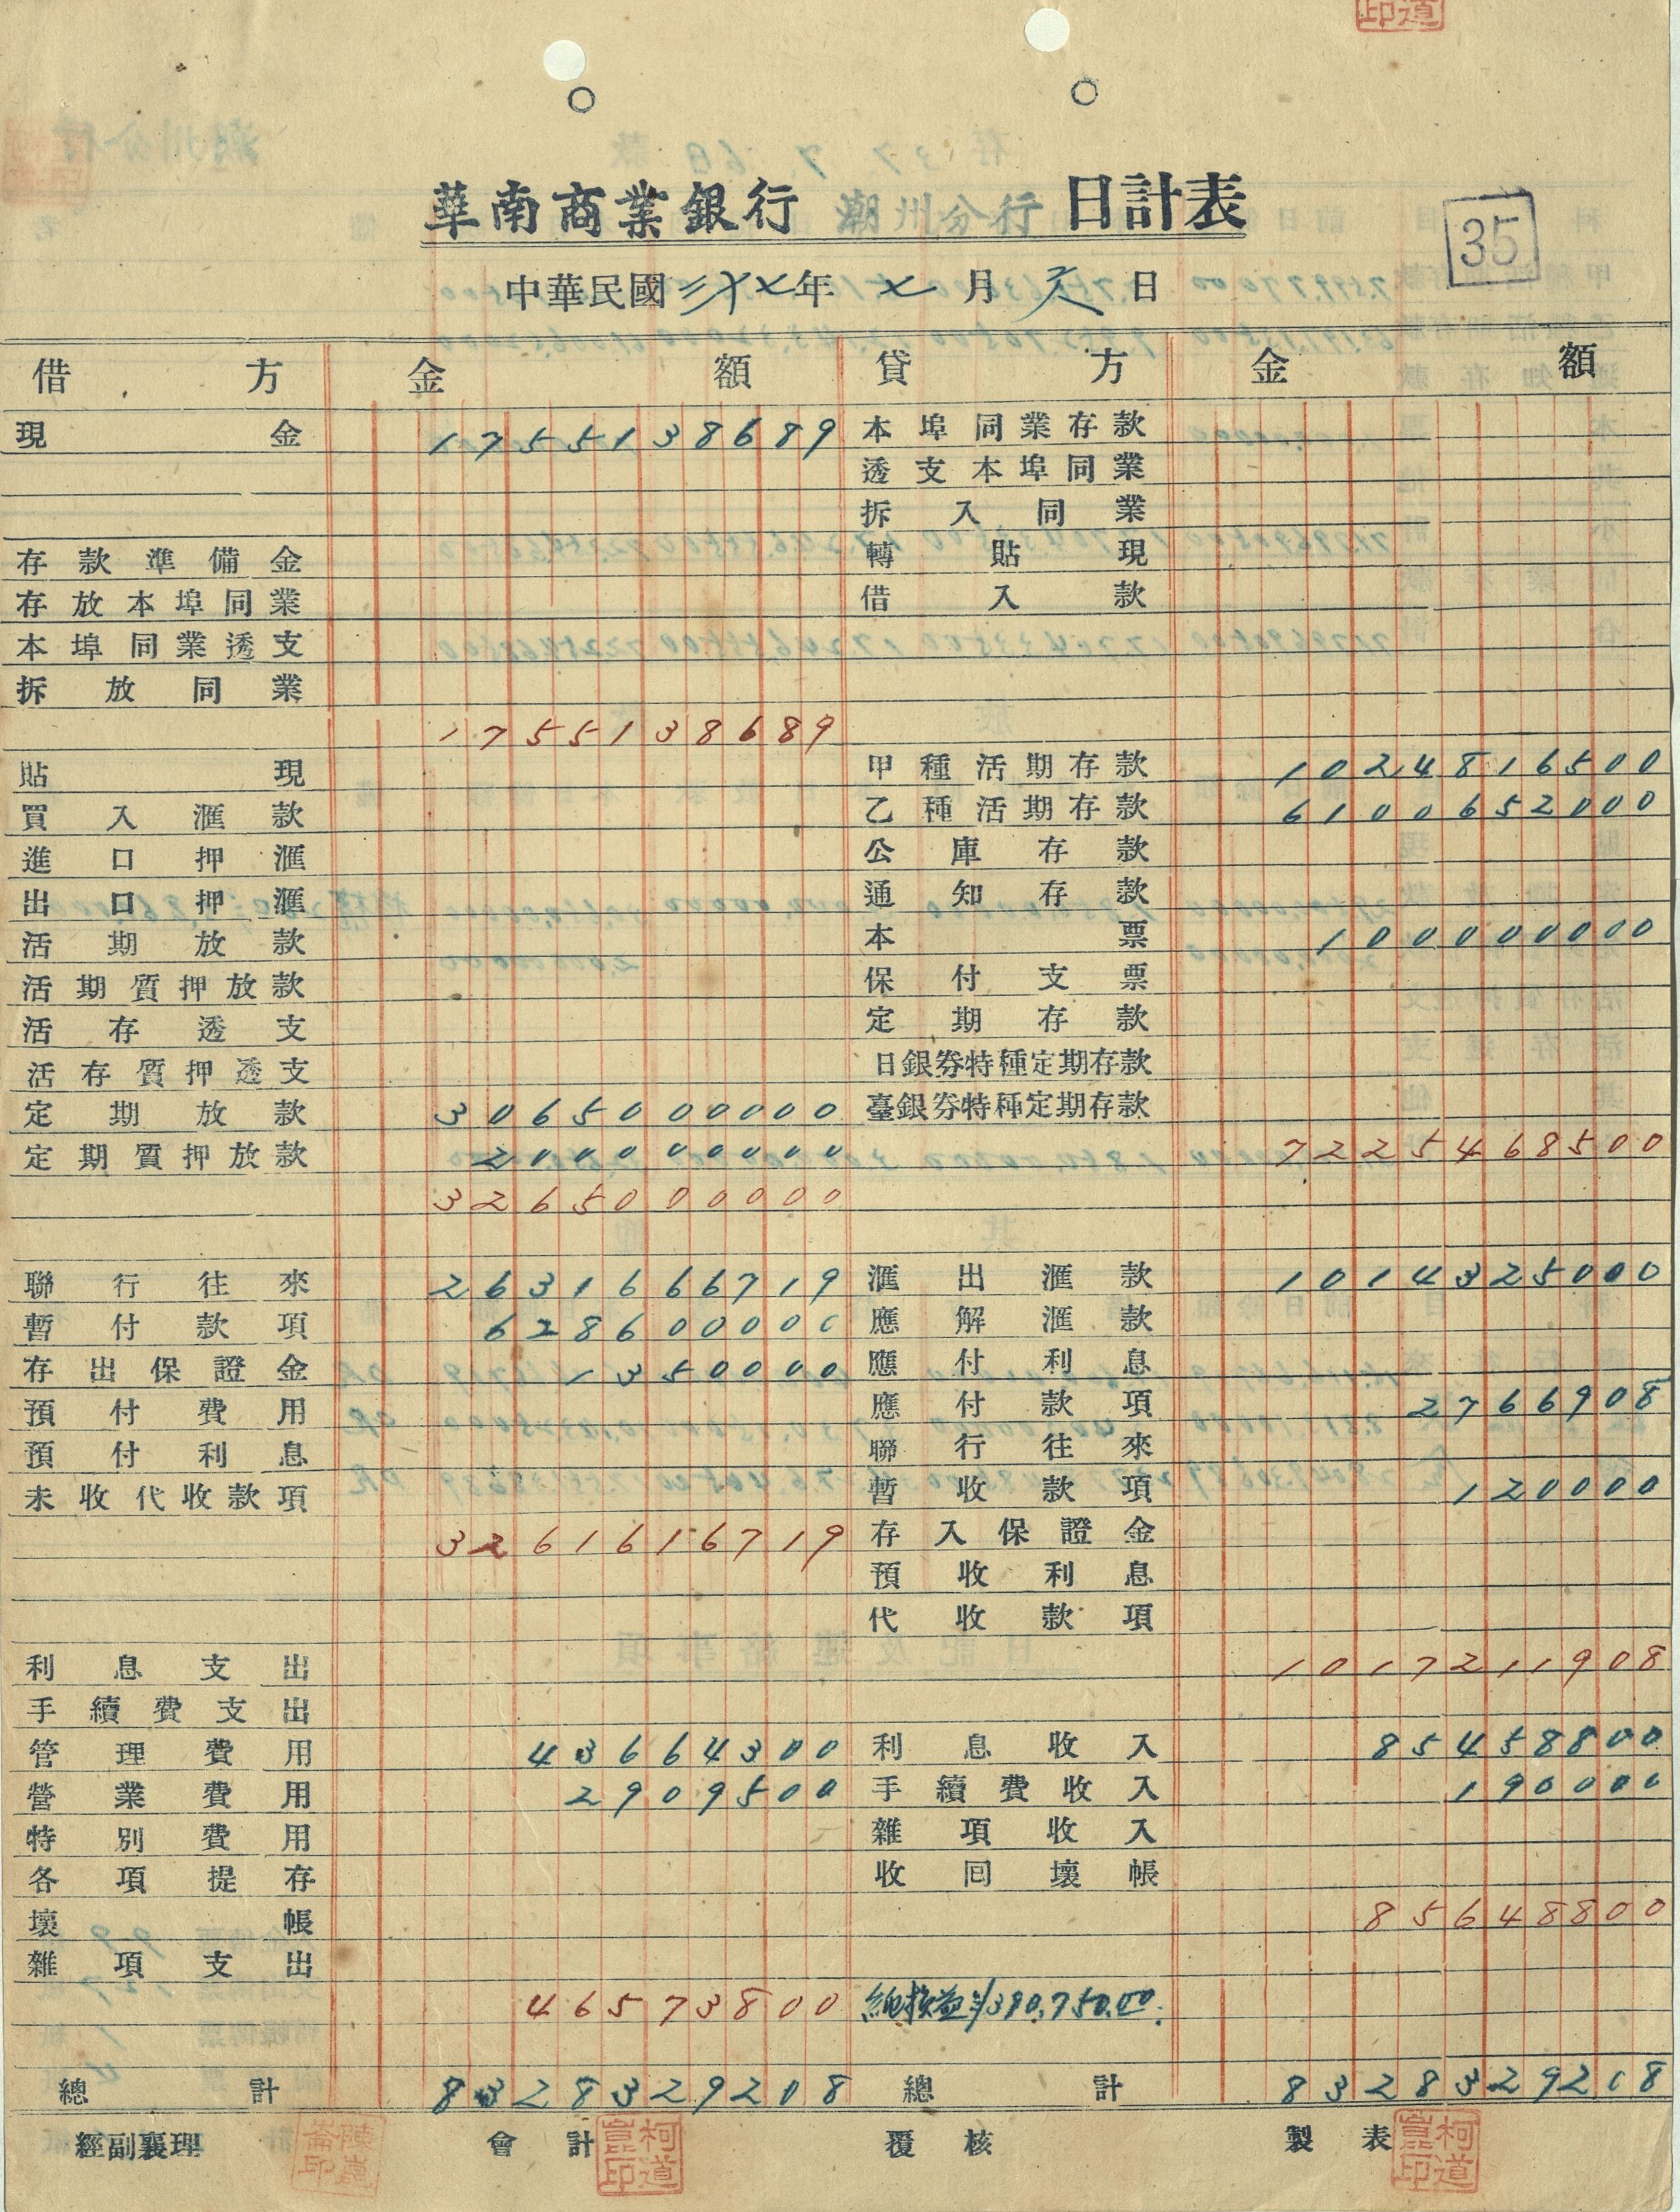 道
印
華南商業銀行 潮州分行 日計表
35
中華民國三十〧年〧月六日
借方 金額 貸方 金額
現金 1755138689 本埠同業存款
透支本埠同業
拆入同業
存款準備金 轉貼現
存放本埠同業 借入款
本埠同業透支
拆放同業
1755138689
貼現 甲種活期存款 1024816500
買入滙款 乙種活期存款 6100652000
進口押滙 公庫存款
出口押滙 通知存款
活期放款 本票 100000000
活期質押放款 保付支票
活存透支 定期存款
活存質押透支 日銀券特種定期存款
定期放款 3065000000 臺銀券特種定期存款
定期質押放款 200000000 7225468500
3265000000
聯行往來 2631666719 滙出滙款 1014325000
暫付款項 628600000 應解滙款
存出保證金 1350000 應付利息
預付費用 應付款項 2766908
預付利息 聯行往來
未收代收款項 暫收款項 120000
3261616719 存入保證金
預收利息
代收款項
利息支出 1017211908
手續費支出
管理費用 43664300 利息收入 85458800
營業費用 2909500 手續費收入 190000
特別費用 雜項收入
各項提存 收回壞帳
壞帳 85648800
雜項支出
46573800 純損益 $390,750.00.
總計 8328329208 總計 8328329208
經副襄理 會計 柯道崑印 覆核 製表 柯道崑印